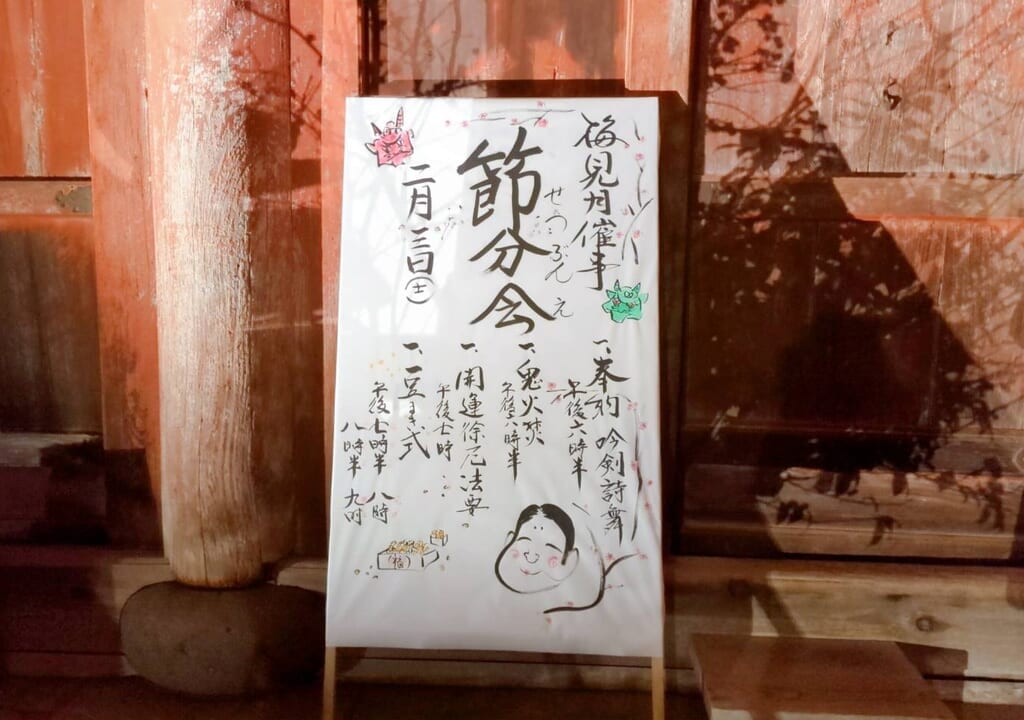 梅見月催事
節分会
せつぶんえ
二月三日(土)
一、奉納 吟剣詩舞
午後六時半
一、鬼火焚
午後六時半
一、開運徐厄法要
午後七時
一、豆まき式
午後七時半 八時
八時半 九時
福